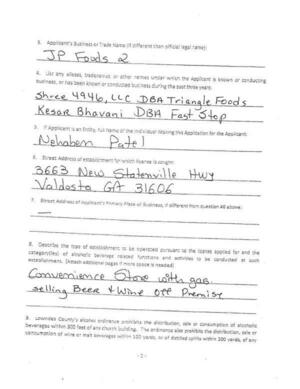 3. Applicant's Business or Trade Name (if different than official legal name):
JP Foods 2
4. List any aliases, tradenames or other names under which the Applicant is known or conducting
business, or has been known or conducted business during the past three years:
Shree 4946, LLC DBA Triangle Foods
Kesar Bhavani DBA Fast Stop
5. If Applicant is an Entity, full Name of the Individual Making this Application for the Applicant:
Nehaben Patel
6. Street Address of establishment for which license is sought:
3663 New Statenville Hwy
Valdosta GA 31606
7. Street Address of Applicant's Primary Place of Business, if different from question #6 above:
—
8. Describe the type of establishment to be operated pursuant to the license applied for and the
category(ies) of alcoholic beverage related functions and activities to be conducted at such
establishment. (Attach additional pages if more space is needed)
Convenience Store with gas.
selling Beer & Wine off Premise
9. Lowndes County's alcohol ordinance prohibits the distribution, sale or consumption of alcoholic
beverages within 300 feet of any church building. The ordinance also prohibits the distribution, sale or
consumption of wine or malt beverages within 100 yards, or of distilled spirits within 200 yards, of any
- 2 -